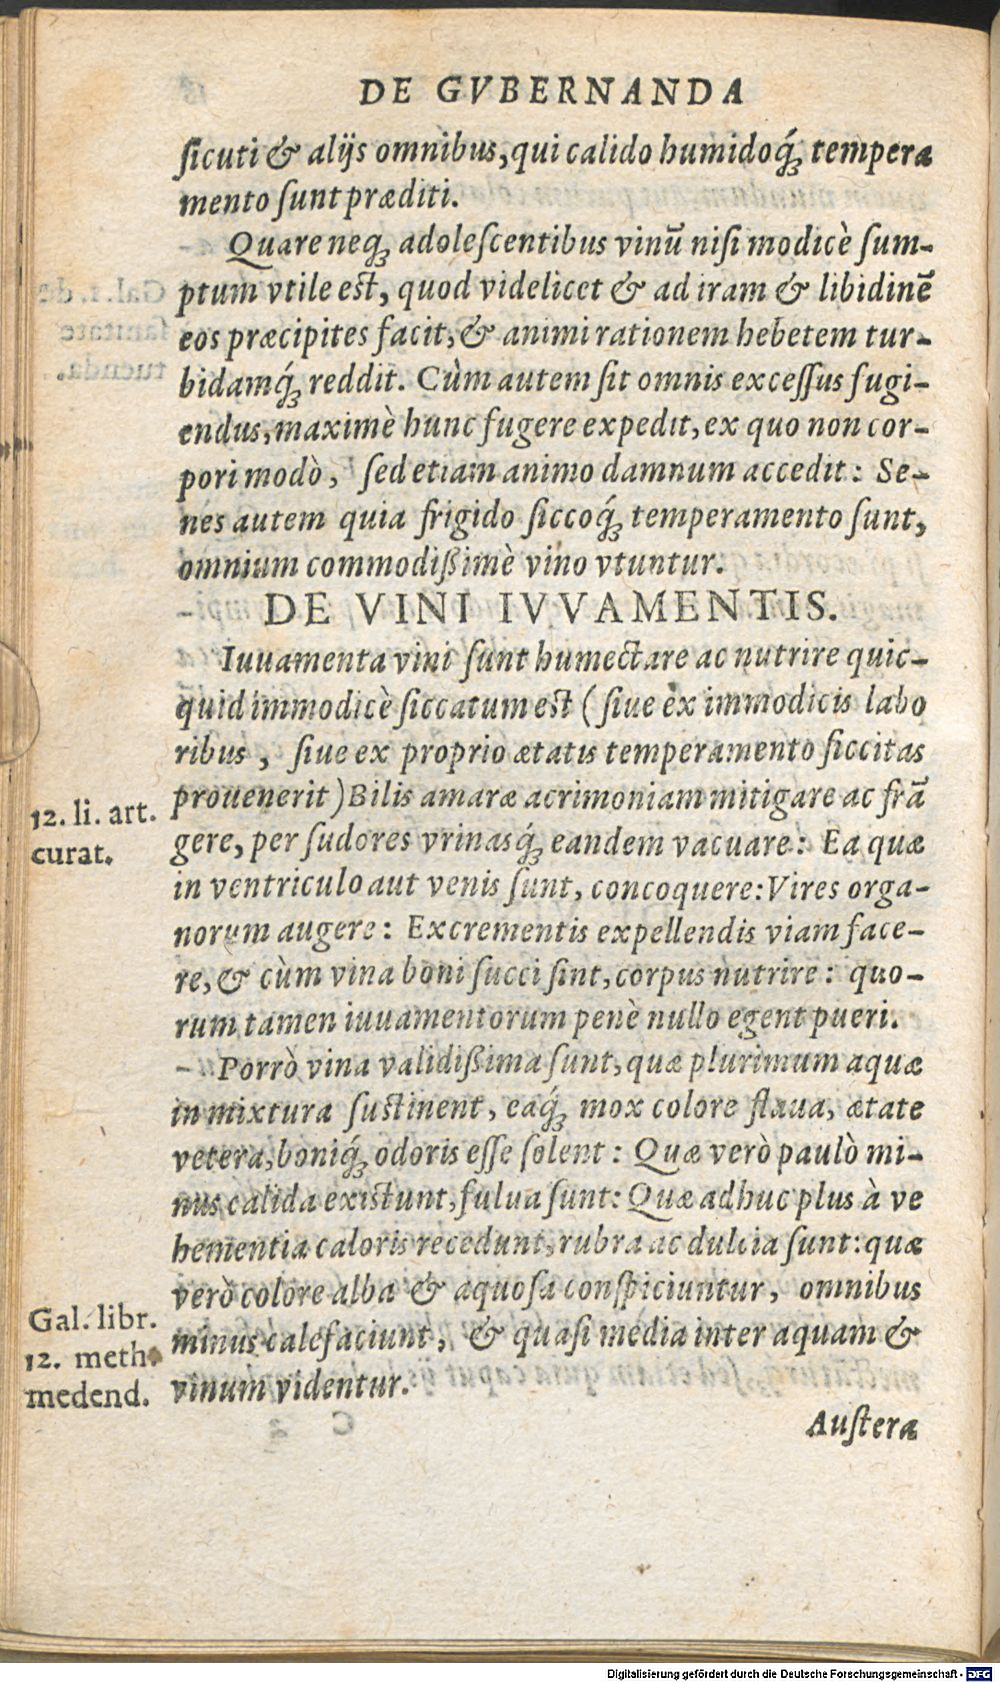 DE GVBERNANDA
ſicuti & alijs omnibus, qui calido humidoq́ꝫ tempera
mento ſunt præditi.
Quare neqꝫ adoleſcentibus vinū niſi modicè ſum-
ptum vtile eſt, quod videlicet & ad iram & libidinē
eos præcipites facit, & animi rationem hebetem tur-
bidamq́ꝫ reddit. Cùm autem ſit omnis exceſſus fugi-
endus, maximè hunc fugere expedit, ex quo non cor-
pori modò, ſed etiam animo damnum accedit: Se-
nes autem quia frigido ſiccoq́ꝫ temperamento ſunt,
omnium commodißimè vino vtuntur.
DE VINI IVVAMENTIS.
Iuuamenta vini ſunt humectare ac nutrire quic-
quid immodicè ſiccatum eſt (ſiue ex immodicis labo
ribus, ſiue ex proprio ætatis temperamento ſiccitas
prouenerit) Bilis amaræ acrimoniam mitigare ac frā
gere, per ſudores vrinasq́ꝫ eandem vacuare: Ea quæ
in ventriculo aut venis ſunt, concoquere: Vires orga-
norum augere: Excrementis expellendis viam face-
re, & cùm vina boni ſucci ſint, corpus nutrire: quo-
rum tamen iuuamentorum penè nullo egent pueri.
Porrò vina validißima ſunt, quæ plurimum aquæ
in mixtura ſuſtinent, eaq́ꝫ mox colore flaua, ætate
vetera, boniq́ꝫ odoris eſſe ſolent: Quæ verò paulò mi-
nus calida exiſtunt, fulua ſunt: Quæ adhuc plus à ve
hementia caloris recedunt, rubra ac dulcia ſunt: quæ
verò colore alba & aquoſa conſpiciuntur, omnibus
minus calefaciunt, & quaſi media inter aquam &
vinum videntur.
Auſteræ
12. li. art.
curat.
Gal. libr.
12. meth.
medend.
Digitalisierung gefördert durch die Deutsche Forschungsgemeinschaft - DFG